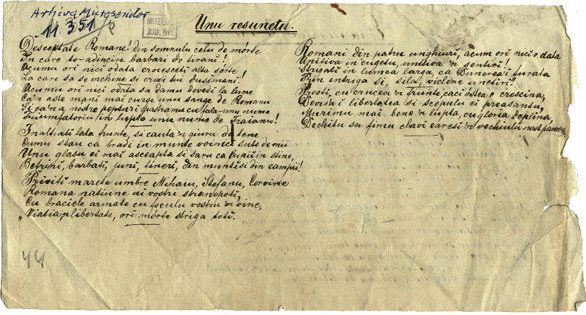 Arhiva Mureșenilor
11.351/8
MUZEUL
JUD. BV.
Unu resunetu.
Desceptate Romane! din somnulu celu de mórte
In care te-adencire barbari de tirani!
Acumu ori nici odata croiesceti alta sórte
La care sa se inchine si cruzi tei dusimani!
Acumu ori nici odata sa damu dovedi la lume
Ca-n aste mani mai curge unu sange de Romanu
Si ca-n a nostre pepturi pastramu cu fala unu nume
Triumfatoriu in lupte unu nume de Traianu!
Inaltiati lata frunte, si cauta'n giuru de tene
Cumu stau ca bradi in munte voinici sute de mii
Unu glasu ei mai ascépta si saru ca lupii in stine,
Betrani, barbati, juni, tineri, din munti si din campii!
Priviti marete umbre Mihaiu, Stefanu, Corvine
Romana natiune ai vostri stranepoti
Cu braciele armate cu foculu vostru'n vine,
„Viatia'n libertate, ori mórte striga toti.
44
Romani din patru unghiuri, acum ori nici o data
Uniti-va in cugetu, uniti-va 'n sentiri!
Strigati in lumea larga, ca Dunarea-i furata
Prin intrega si, sila, viclene uneltiri.
Preoti, cu crucea 'n frunte, caci óstea e crestina,
Devisa-i libertatea si scopulu ei preasantu,
Murimu mai bene 'n lupta, cu gloria deplina,
Decâtu sa fimu sclavi earasi in vechiulu nost pamentu